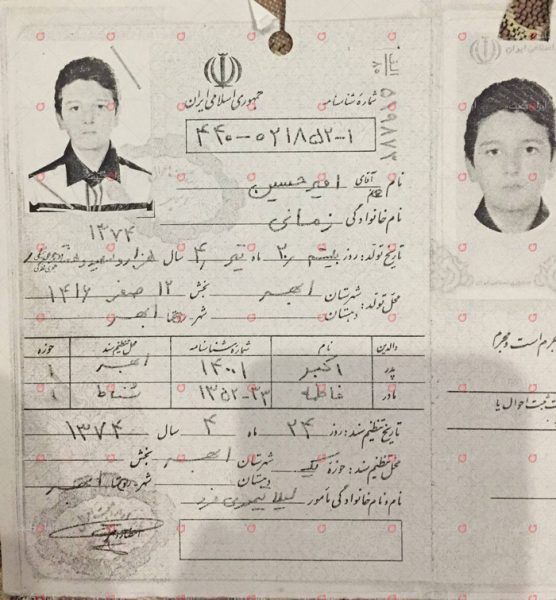 جمهوری اسلامی ایران
شماره شناسنامه
۴۴۰-۰۲۱۸۵۲-۱
الف ۵۱۹۸۷۳
۸۰
نام آقای امیرحسین
نام خانوادگی زمانی
۱۳۷۴
تاریخ تولد: روز بیستم ۲۰ ماه تیر ۴ سال هزار و سیصد و
محل تولد: شهرستان ابهر بخش ۱۲ صفر ۱۴۱۶
دهستان شهر-روستا ابهر
والدین نام شماره شناسنامه محل تنظیم سند حوزه
پدر اکبر ۱۴۰۰۱ ابهر ۱
مادر فاطمه ۱۳۵۲-۳۳ شناط ۱
تاریخ تنظیم سند: روز ۲۴ ماه ۴ سال ۱۳۷۴
محل تنظیم سند: حوزه یک شهرستان ابهر بخش
دهستان شهر-روستا ابهر
نام و نام خانوادگی مأمور: لیلا تیموری فرد
جرم است و مجرم
ثبت احوال یا